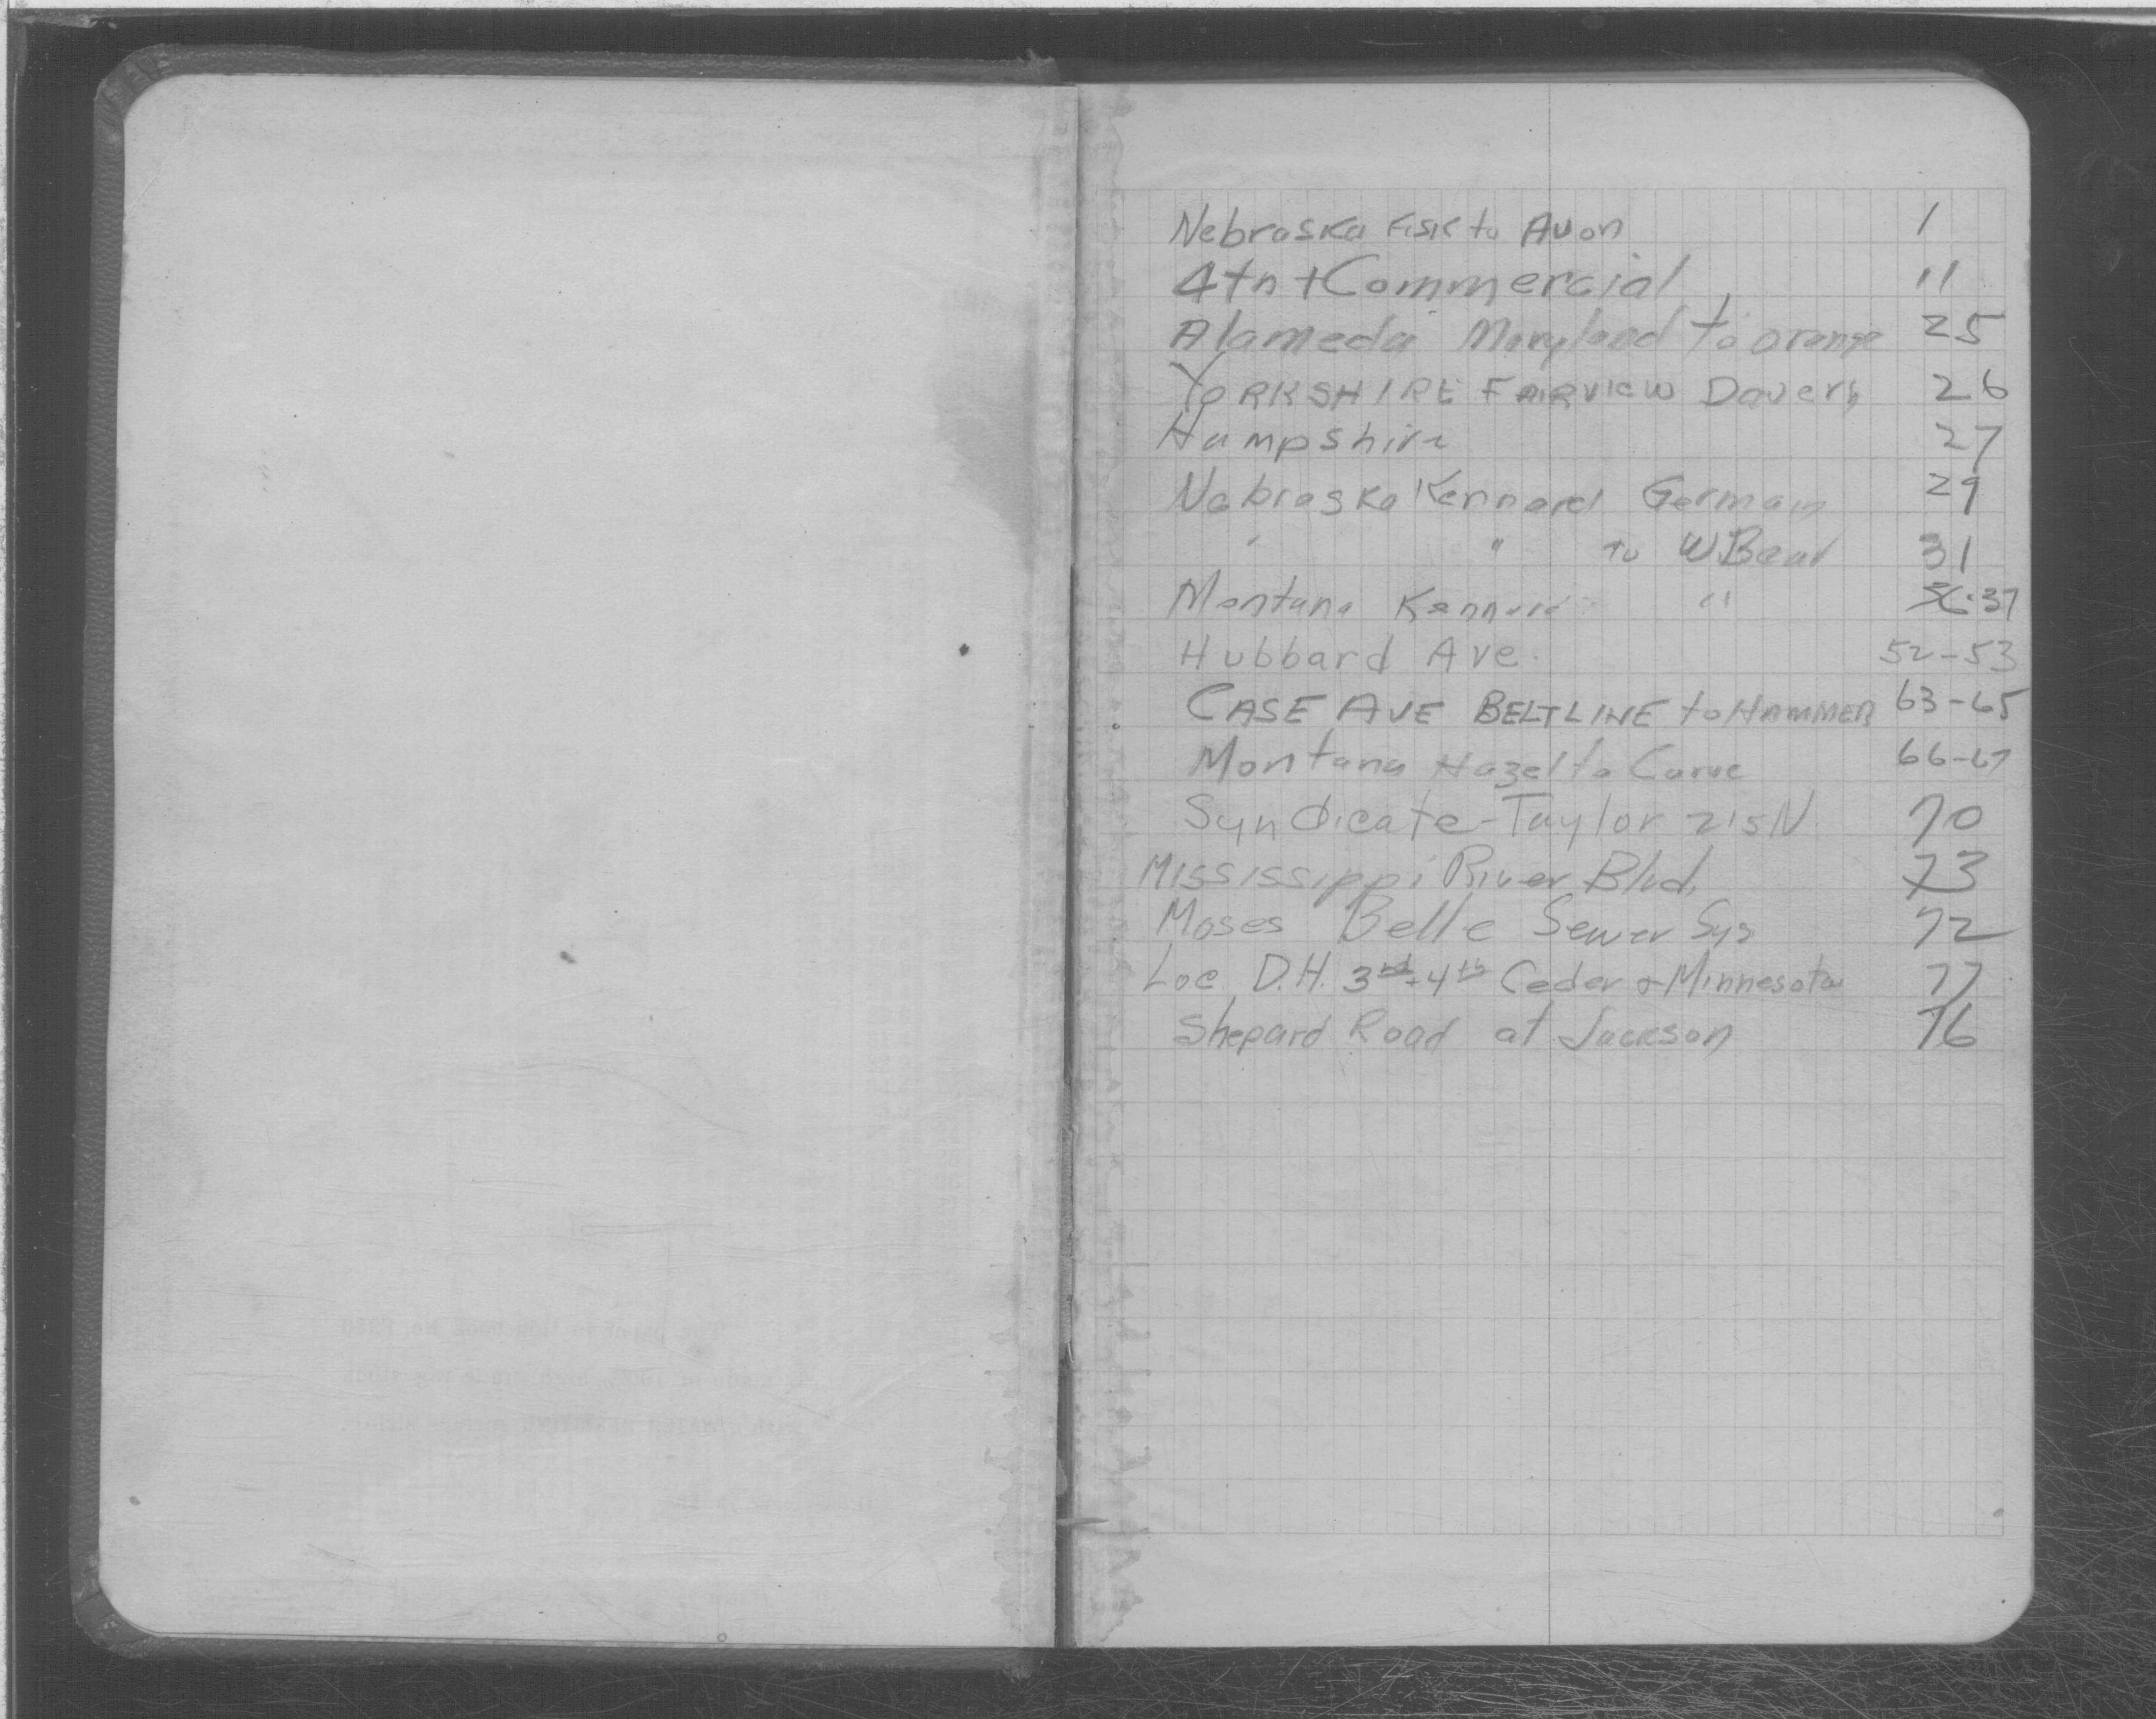 Nebraska Fisk to Avon 1
4th + Commercial 11
Alameda Maryland to orange 25
YORKSHIRE FAIRVIEW Davern 26
Hampshire 27
Nebraska Kennard Germain 29
" " to W Bear 31
Montana Kennard " 36-37
Hubbard Ave. 52-53
CASE AVE BELTLINE to HAMMER 63-65
Montana Hazel to Curve 66-67
Syndicate-Taylor 215N 70
Mississippi River Blvd. 73
Moses Belle Sewer Sys 72
Loc D.H. 3rd + 4th Ceder & Minnesota 77
Shepard Road at Jackson 76